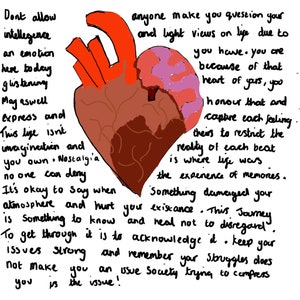 Dont allow anyone make you question your
intellegence and light views on life due to
an emotion you have. you are
here today because of that
glistening heart of yours, you
May aswell honour that and
express and capture each feeling
This life isn't theirs to restrict the
imagination and reality of each beat
you own. Nostalgia is where life was
no one can deny the experience of memories.
It's okay to say when Something damaged your
atmosphere and hurt your existance. This Journey
is something to know and heal not to disregard.
To get through it is to acknowledge it. keep your
issues strong and remember your struggles does
not make you an issue Society trying to compress
you is the issue!